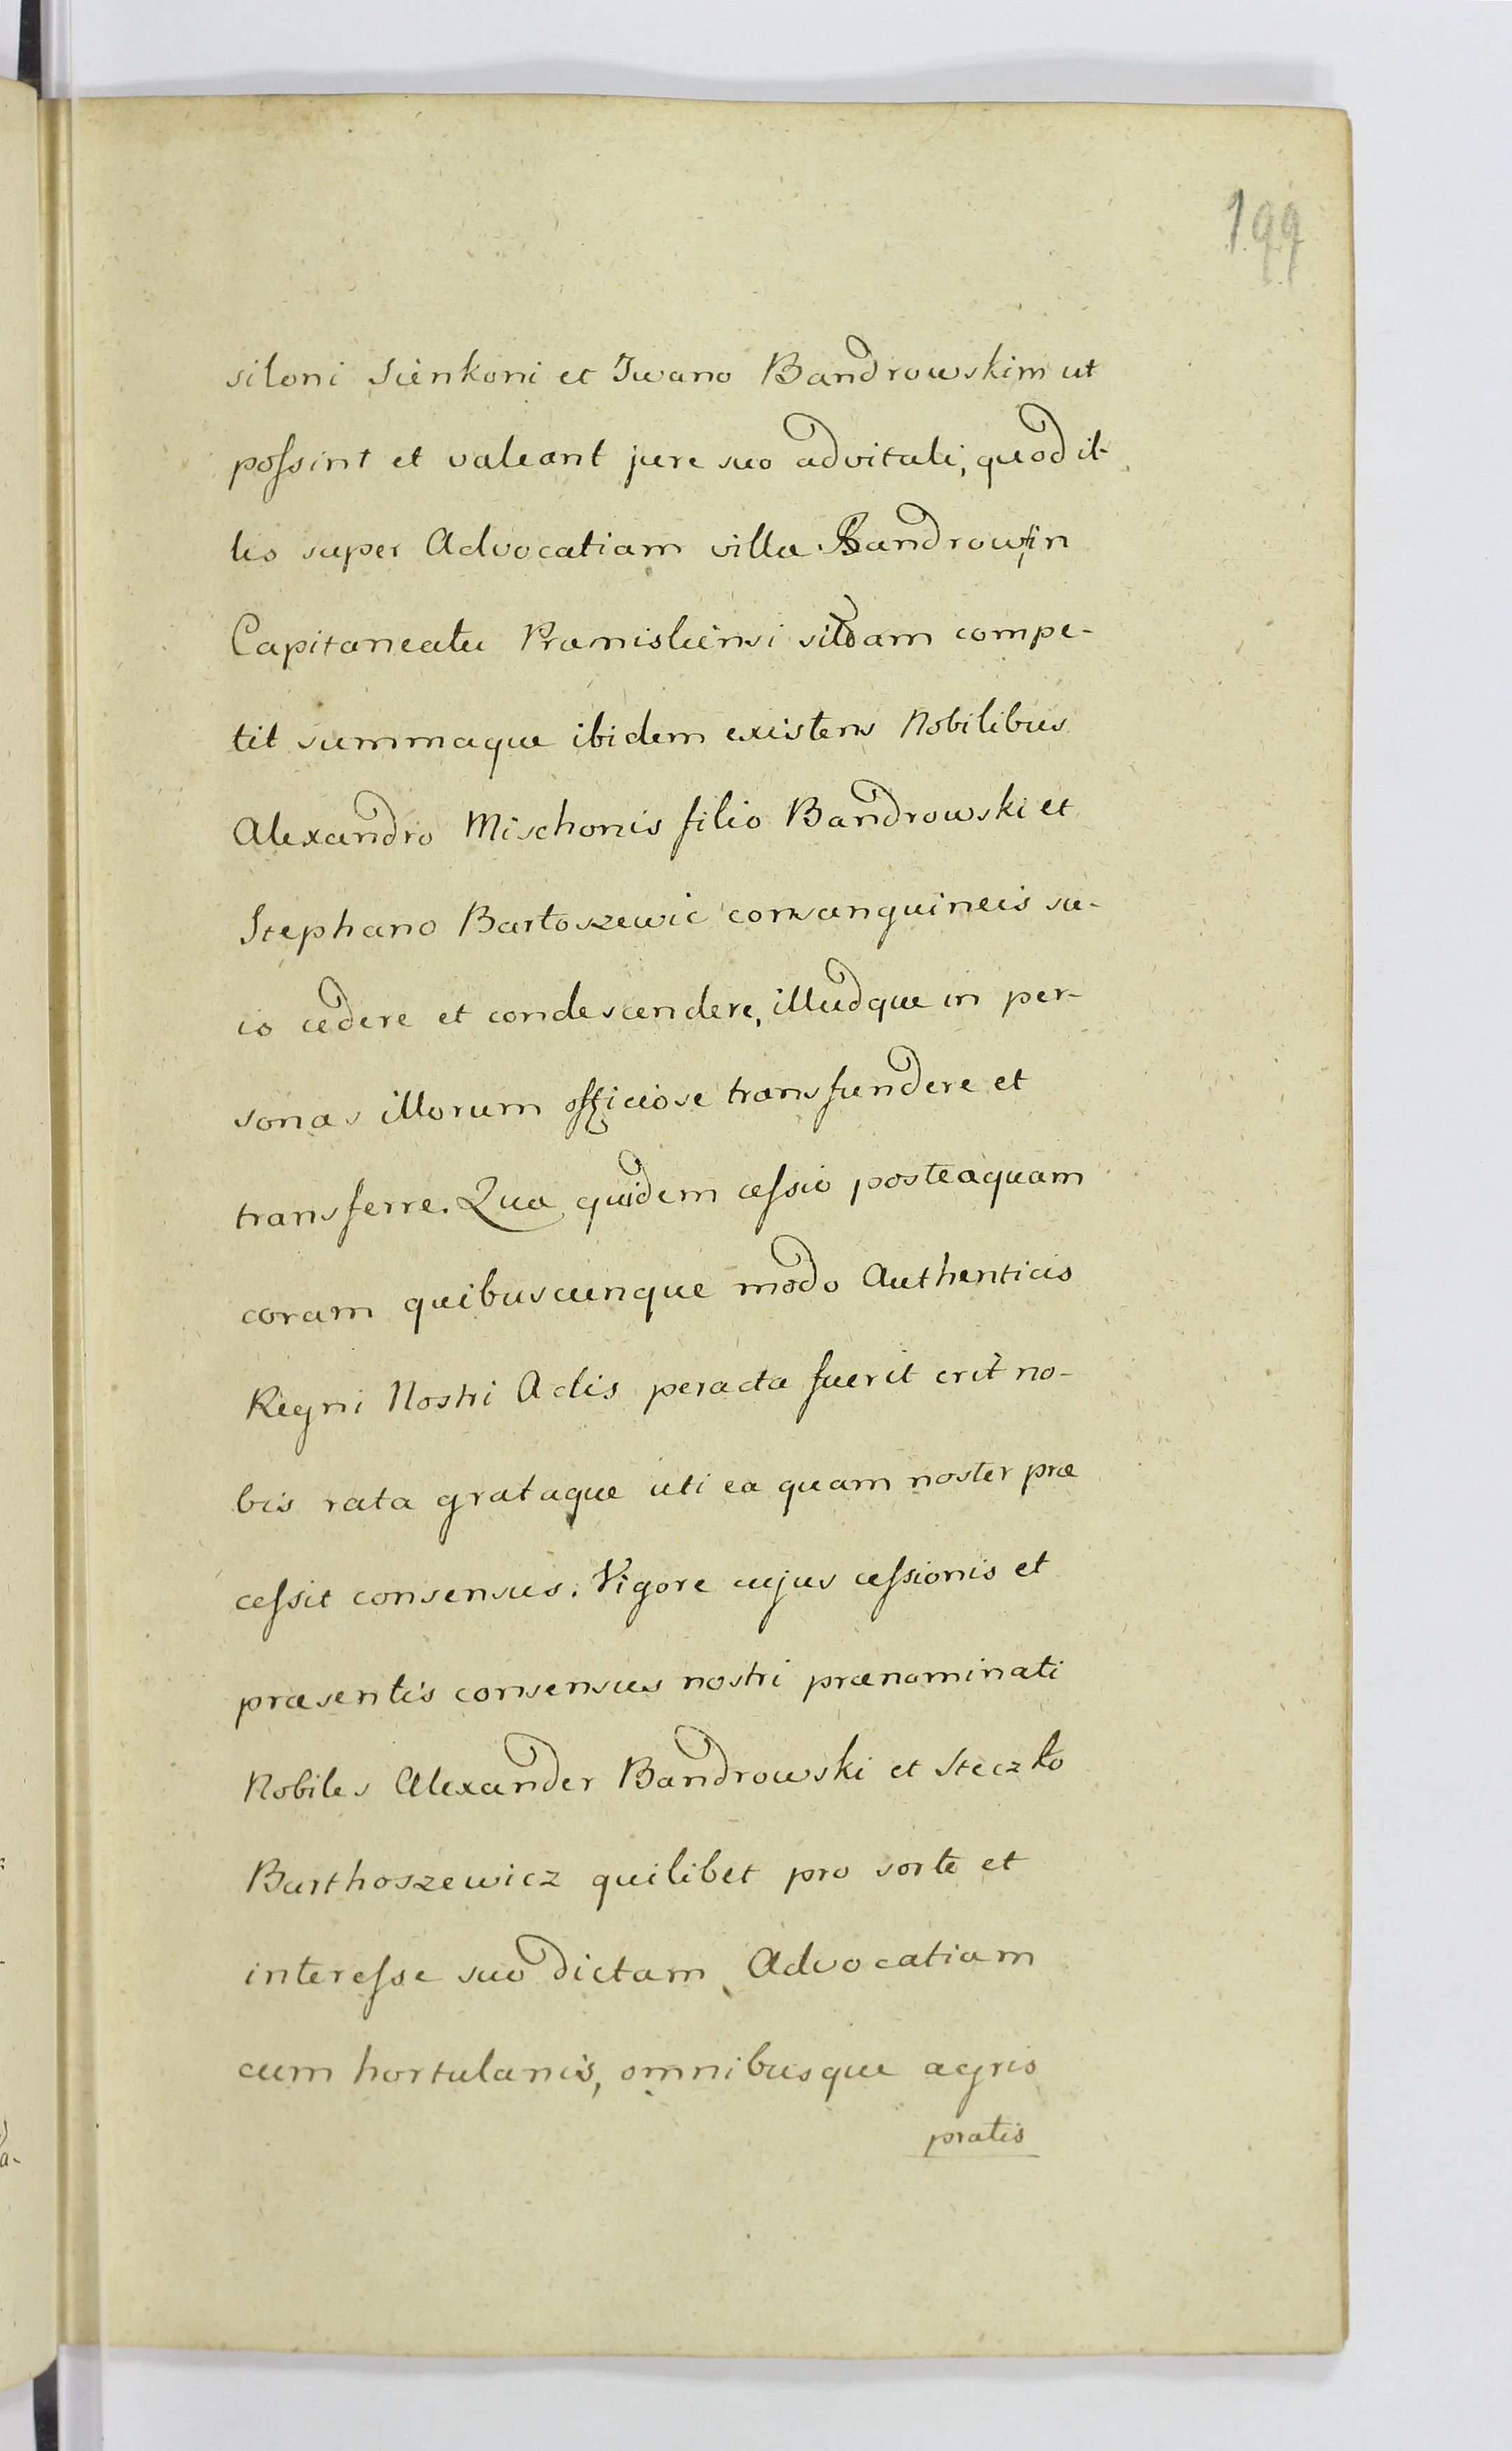 199
siloni Sienkoni et Iwano Bandrowskim ut
possint et valeant jure suo advitali, quod il-
lis super Advocatiam villæ Bandrow in
Capitaneatu Præmisliensi sitam compe-
tit summaque ibidem existens Nobilibus
Alexandro Mischonis filio Bandrowski et
Stephano Bartoszewic consanguineis su-
is cedere et condescendere, illudque in per-
sonas illorum officiose transfundere et
transferre. Quæ quidem cessio posteaquam
coram quibuscunque modo Authenticis
Regni Nostri Actis peracta fuerit erit no-
bis rata grataque uti ea quam noster præ
cessit consensus. Vigore cujus cessionis et
præsentis consensus nostri prænominati
Nobiles Alexander Bandrowski et Steczko
Barthoszewicz quilibet pro sorte et
interesse suo dictam Advocatiam
cum hortulanis, omnibusque agris
pratis